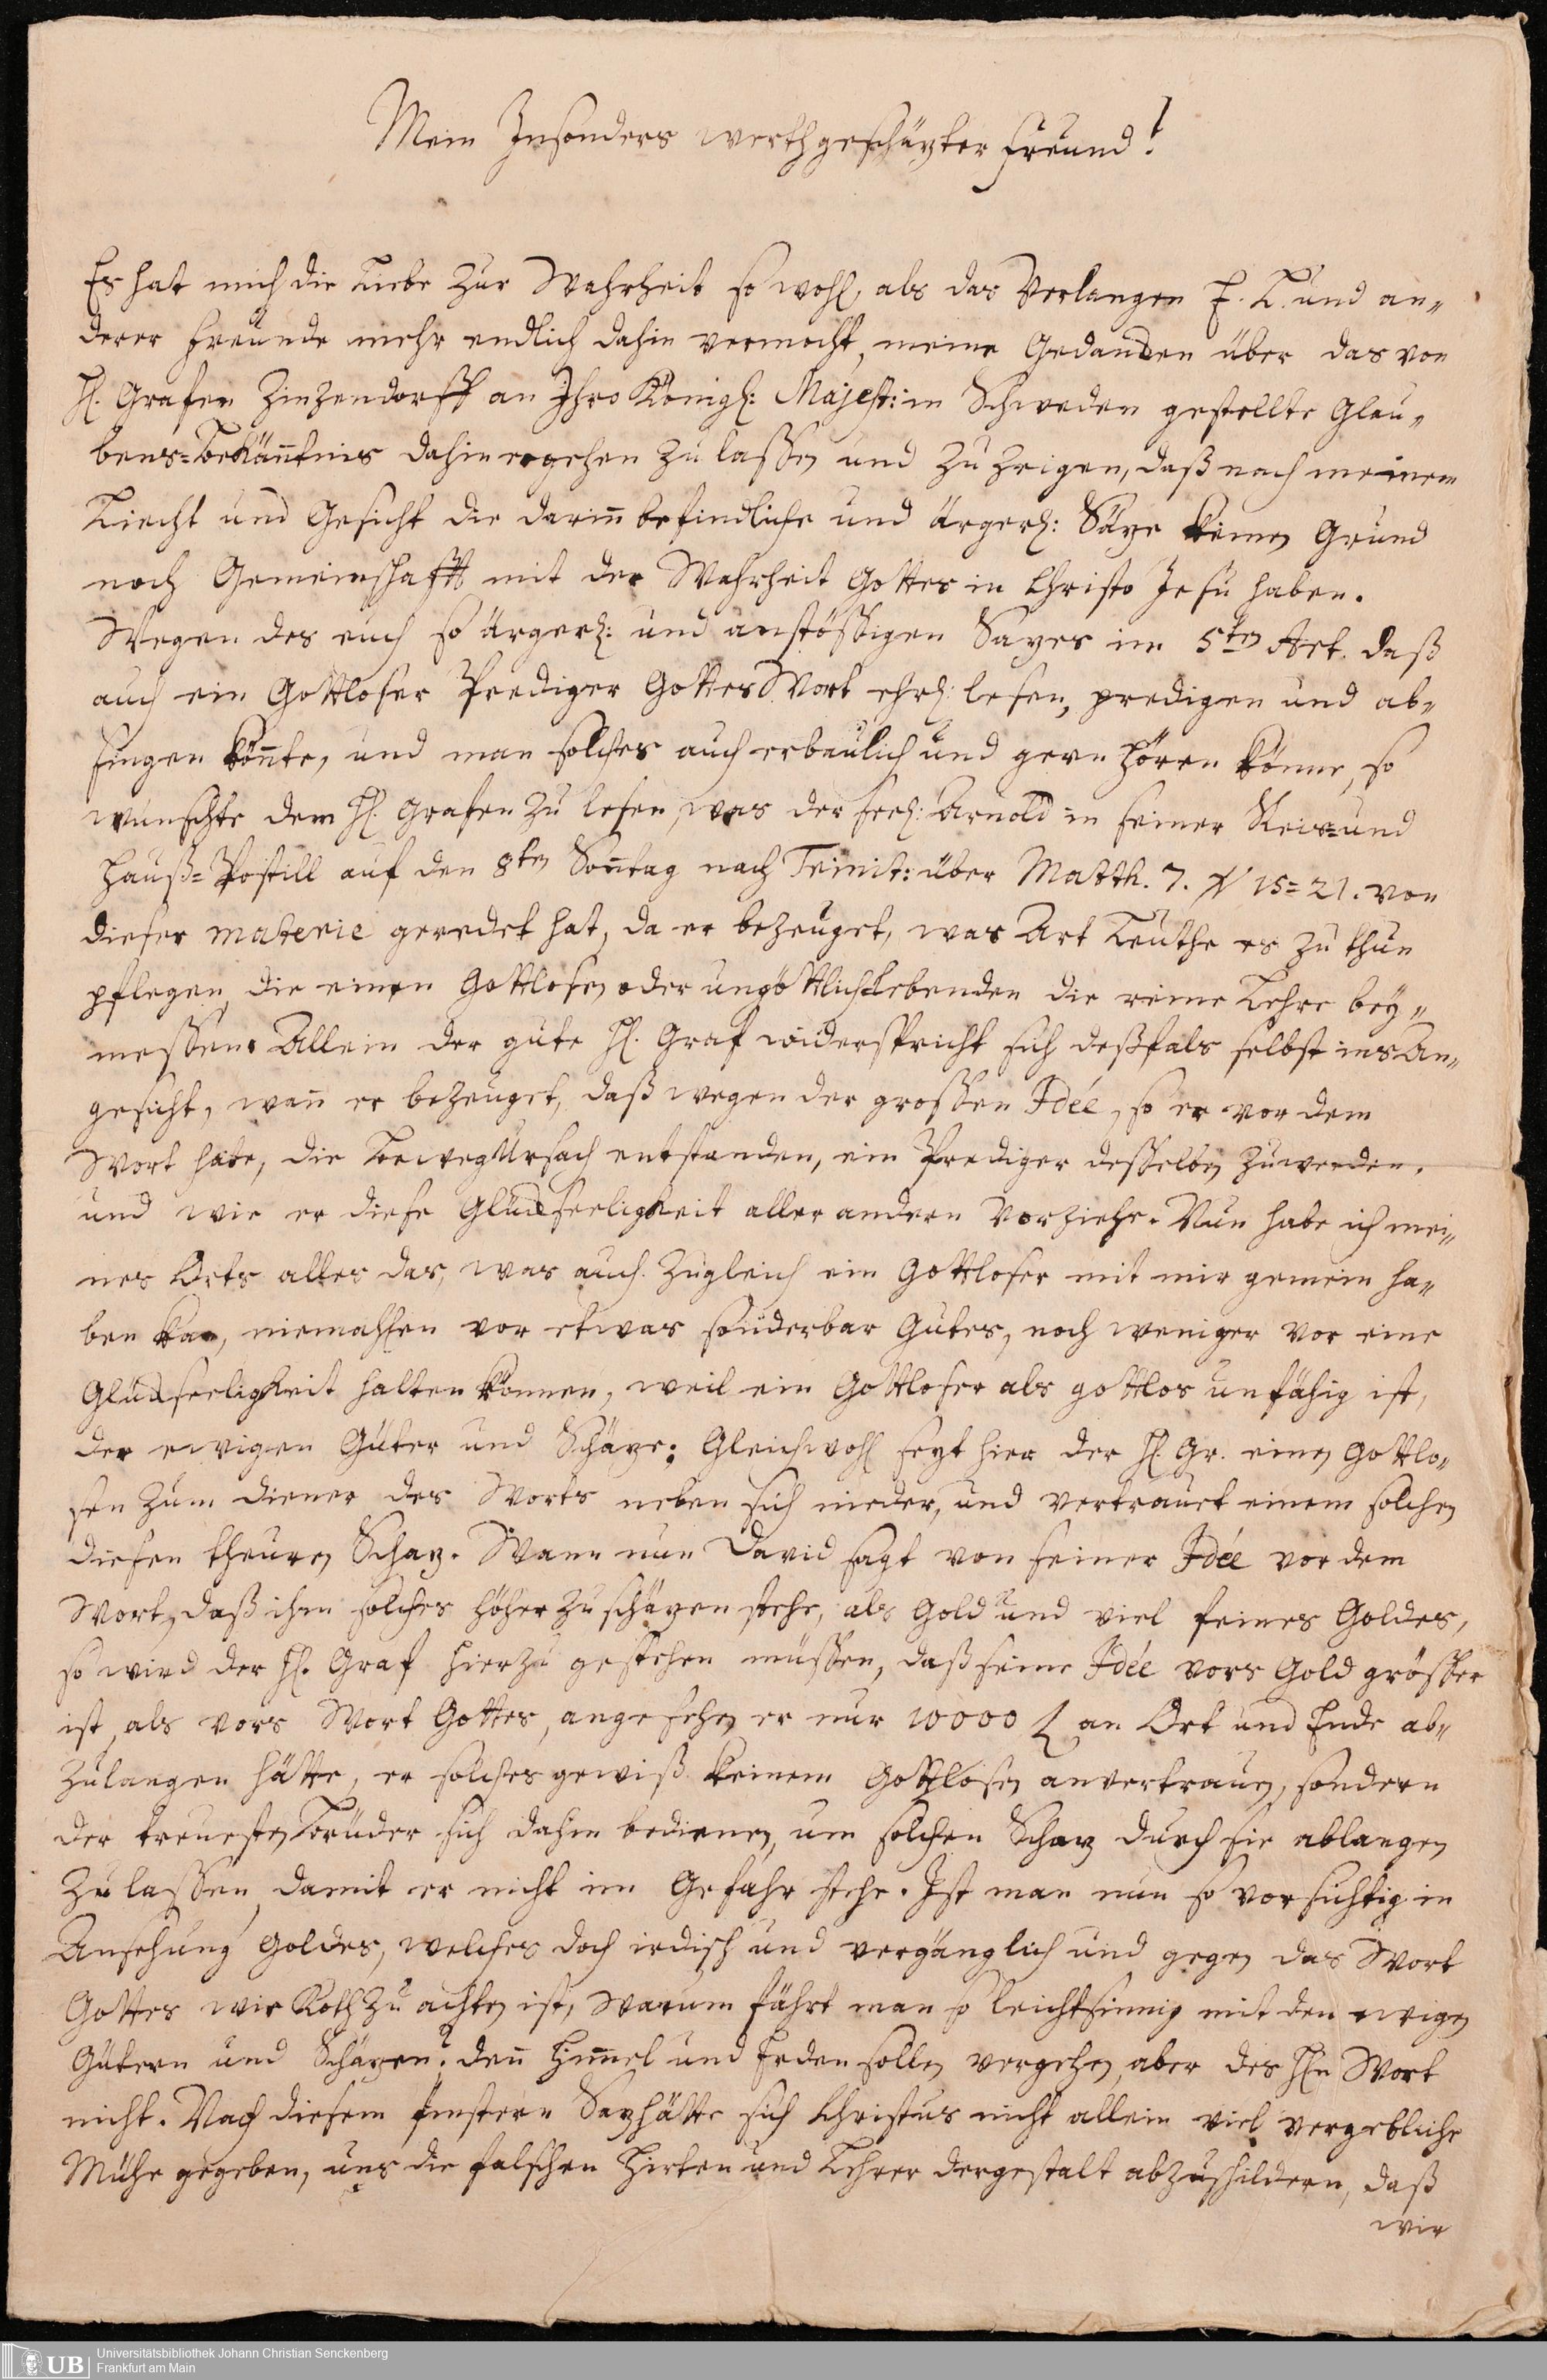 Mein Insonders werthgeschäzter Freund!
Es hat mich die Liebe zur Wahrheit so wohl, als das Verlangen E. L. und an„
derer Freunde mehr endlich dahin vermocht, meine Gedancken über das von
H. Grafen Zinzendorff an Ihro Königl: Majest: in Schweden gestellte Glau„
bens=Bekäñtnis dahin ergehen zu lassen und zu zeigen, daß nach meinem
Liecht und Gesicht die dariñ befindliche und ärgerl: Säze keinen Grund
noch Gemeinschafft mit der Wahrheit Gottes in Christo Jesu haben.
Wegen des euch so ärgerl: und anstößigen Sazes im 5ten Art. daß
auch ein Gottloser Prediger Gottes Wort ehrl: lesen, predigen und ab„
singen köñte, und man solches auch erbaulich und gern hören könne, so
wünschte dem H. Grafen zu lesen, was der seel: Arnold in seiner Reis= und
Hauß=Postill auf den 8ten Soñtag nach Trinit: über Matth. 7. ℣ 15=21. von
dieser materie geredet hat, da er bezeuget, was Art Leuthe es zu thun
pflegen, die einen Gottlosen oder ungöttlich lebenden die reine Lehre bey„
messen. Allein der gute H. Graf widerspricht sich deßfals selbst ins An„
gesicht, wañ er bezeuget, daß wegen der grossen Idée, so er vor dem
Wort habe, die BewegUrsach entstanden, ein Prediger desselben zu werden.
und wie er diese Glückseeligkeit aller andern vorziehe. Nun habe ich mei„
nes Orts alles das, was auch zugleich ein Gottloser mit mir gemein ha„
ben kan, niemahlen vor etwas sonderbar Gutes, noch weniger vor eine
Glückseeligkeit halten können, weil ein Gottloser als gottlos unfähig ist,
der ewigen Güter und Schäze; Gleichwohl sezt hier der H. Gr. einen Gottlo„
sen zum diener des Worts neben sich nieder, und vertrauet einem solchen
diesen theuren Schaz. Wann nun David sagt von seiner Idée vor dem
Wort, daß ihm solches höher zu schäzen stehe, als Gold und viel feines Goldes,
so wird der H. Graf hierzu gestehen müssen, daß seine Idée vors Gold grösser
ist, als vors Wort Gottes, angesehen er nur 10000 an Ort und Ende ab„
zulangen hätte, er solches gewiß keinem Gottlosen anvertrauen, sondern
der treuesten Brüder sich dahin bedienen, um solchen Schaz durch sie ablangen
zu lassen, damit er nicht in Gefahr stehe. Ist man nun so vorsichtig in
Ansehung Goldes, welches doch irdisch und vergänglich und gegen das Wort
Gottes wie Koth zu achten ist, warum fährt man so leichtsinnig mit den ewigen
Gütern und Schäzen? deñ Hiṁel und Erden sollen vergehen, aber des Hñ Wort
nicht. Nach diesem finstern Saz hätte sich Christus nicht allein viel vergebliche
Mühe gegeben, uns die falschen Hirten und Lehrer dergestalt abzuschildern, daß
wir
UB
Universitätsbibliothek Johann Christian Senckenberg
Frankfurt am Main